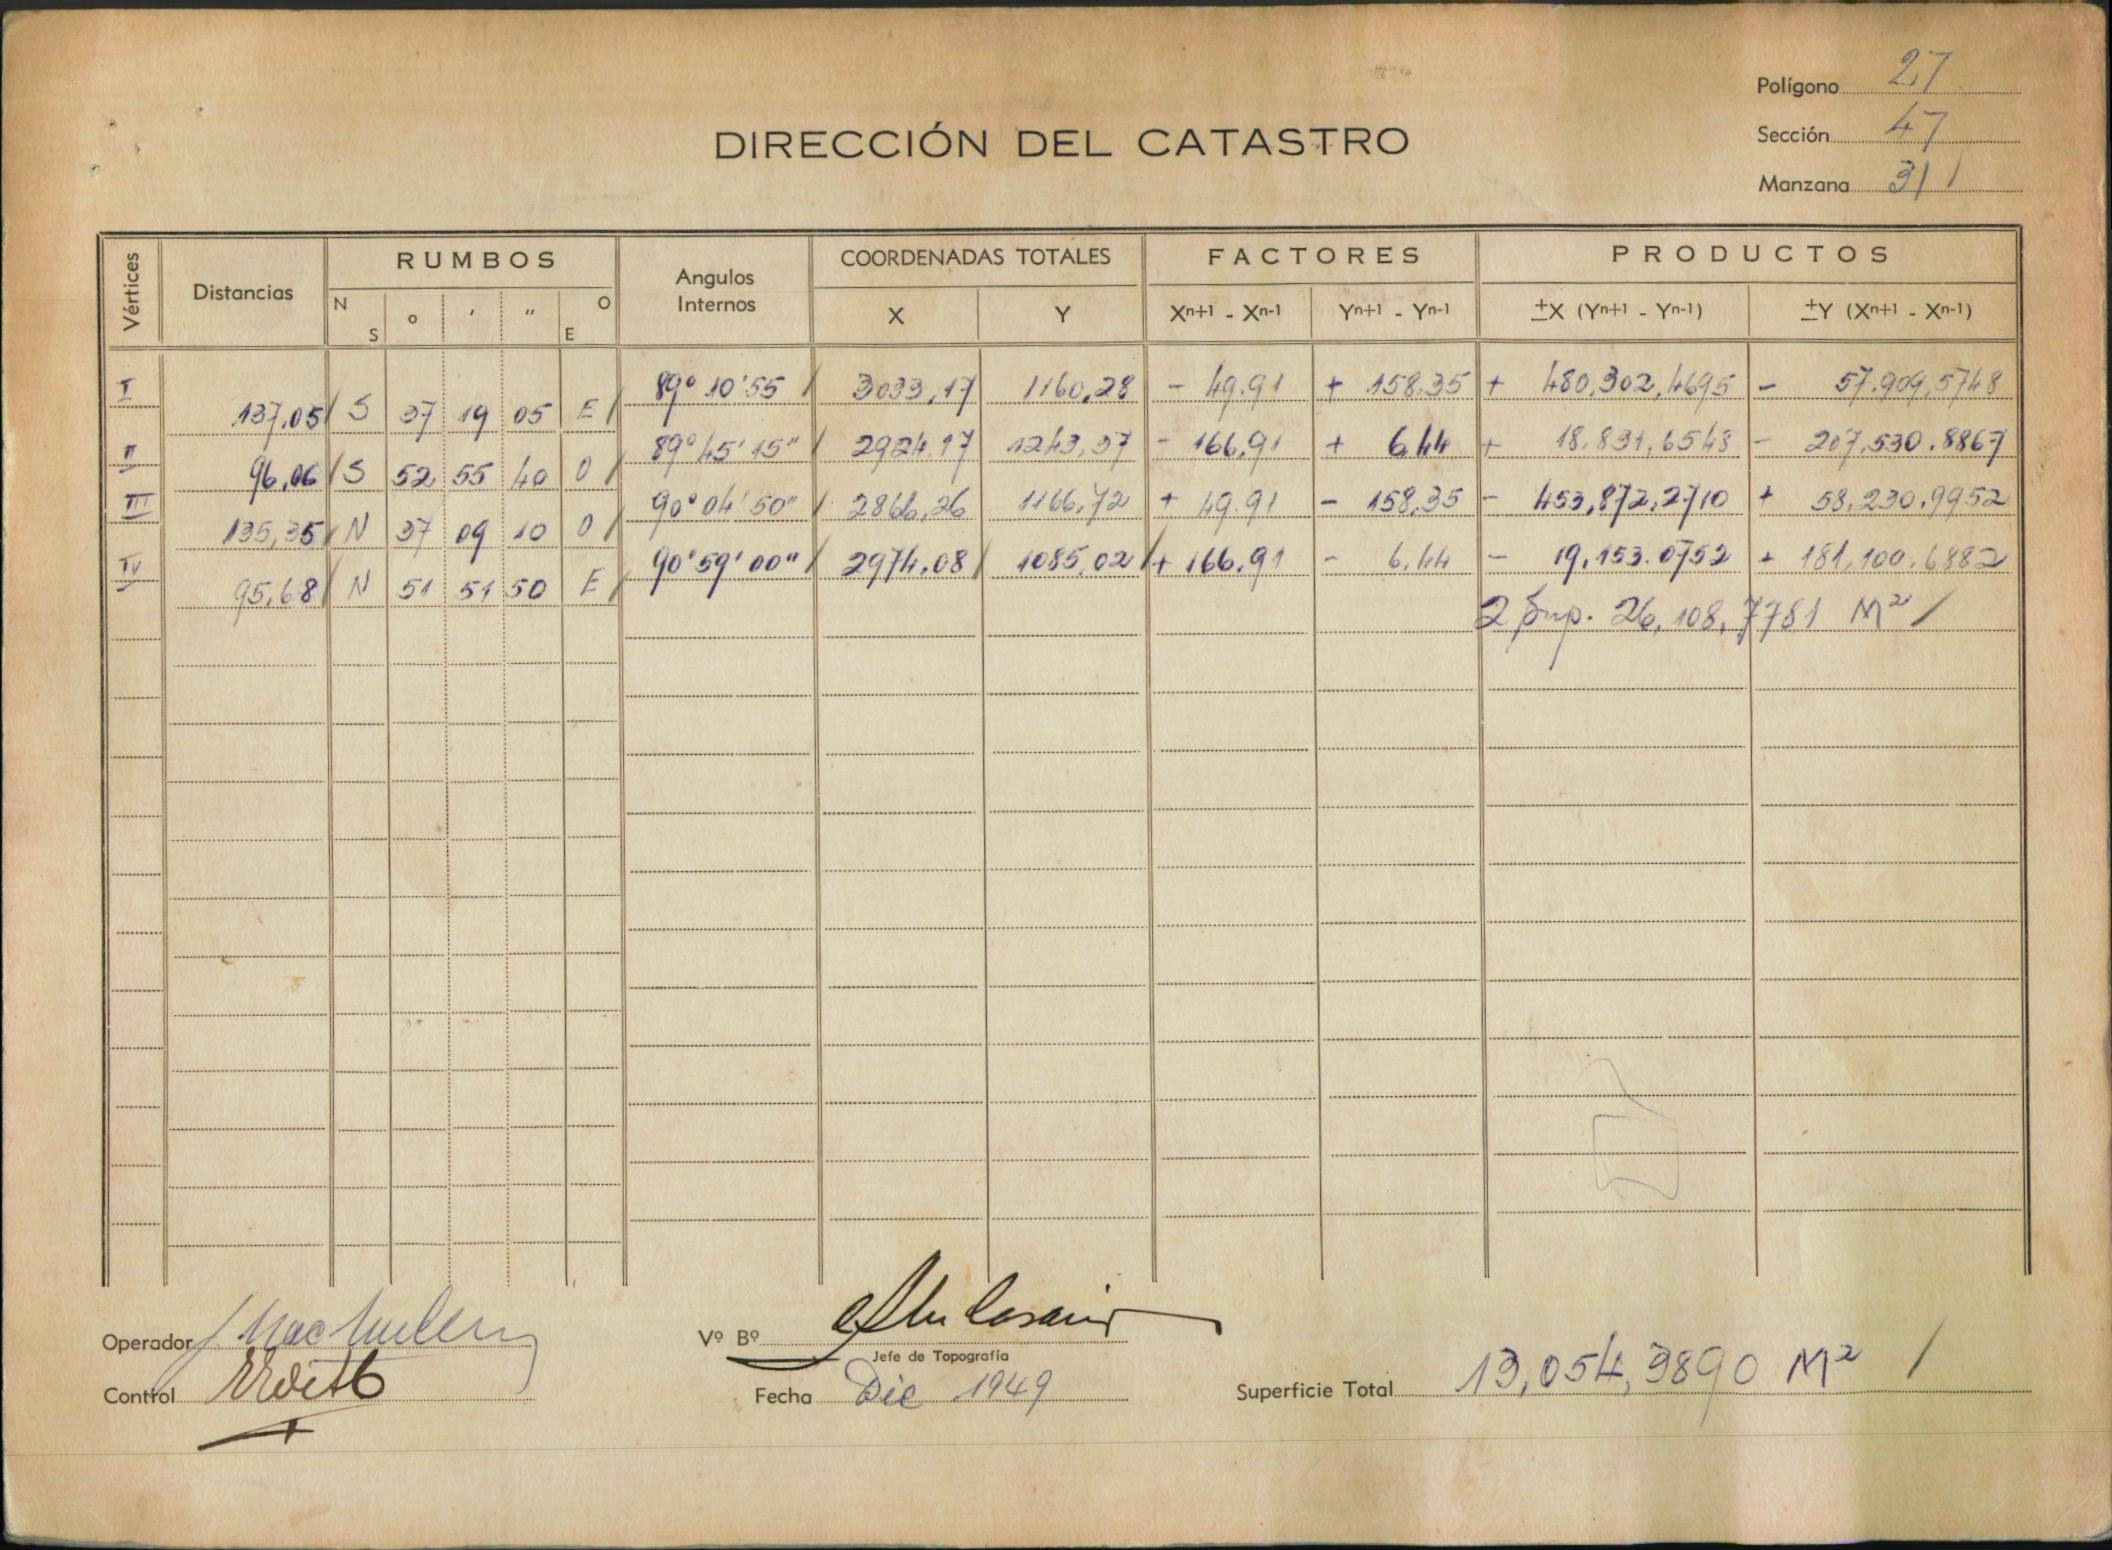 Polígono 27
DIRECCIÓN DEL CATASTRO
Sección 47
Manzana 31 /
Vértices Distancias RUMBOS Angulos Internos COORDENADAS TOTALES FACTORES PRODUCTOS
N S ° ' " O E X Y Xn+1 - Xn-1 Yn+1 - Yn-1 ±X (Yn+1 - Yn-1) ±Y (Xn+1 - Xn-1)
I 89° 10' 55 / 3033,17 1160,28 - 49.91 + 158.35 + 480,302,4695 - 57.909,5748
137,05/ S 37 19 05 E /
II 89° 45' 15" / 2924.17 1243,37 - 166,91 + 6,44 + 18.831,6548 - 207,530.8867
96,06 / S 52 55 40 O /
III 90° 04' 50" / 2866,26 1166,72 + 49.91 - 158,35 - 453,872,2710 + 58,230.9952
135,35/ N 37 09 10 O /
IV 90° 59' 00" / 2974.08/ 1085,02 / + 166.91 - 6,44 - 19,153.0752 + 181,100.6882
95,68/ N 51 51 50 E /
2 Sup. 26,108,7781 M² /
Operador
Vº Bº
Jefe de Topografía
Control
Fecha Dic 1949
Superficie Total 13,054,3890 M² /